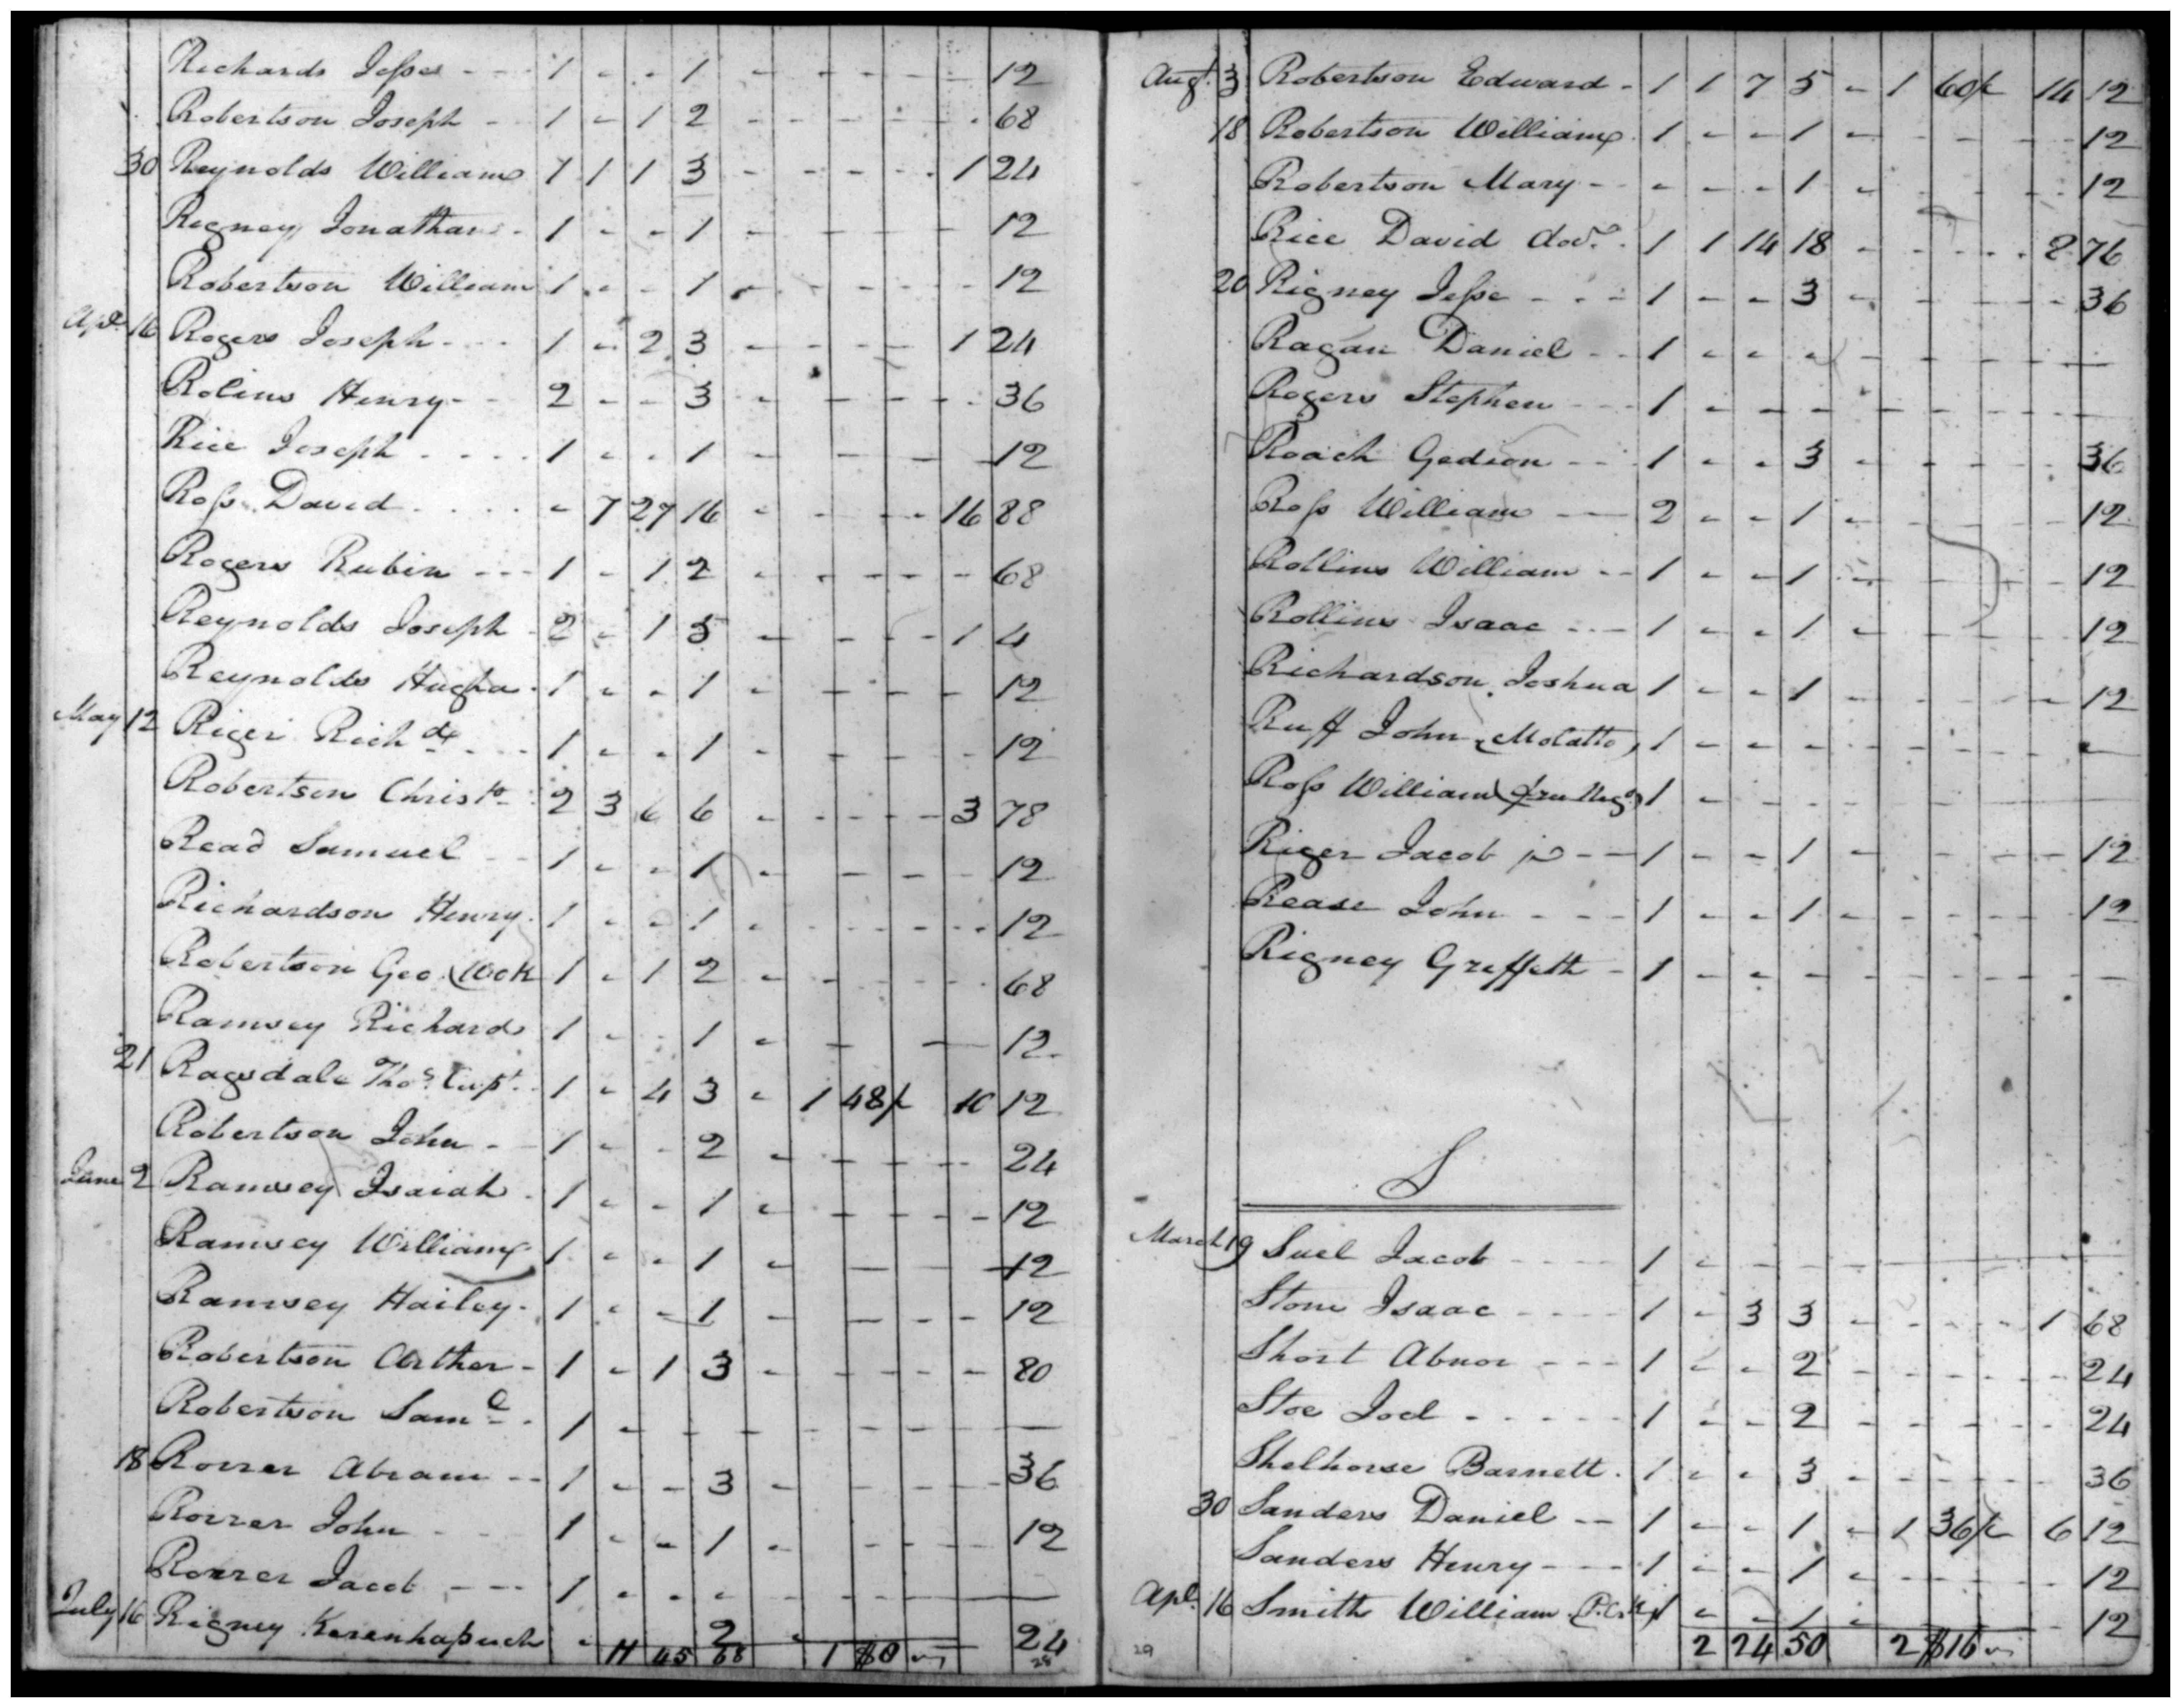 Richards Jesse - - 1 - - 1 - - - - - 12
Robertson Joseph - 1 - 1 2 - - - - - 68
30 Reynolds William 1 1 1 3 - - - - 1 24
Rigney Jonathan - 1 - - 1 - - - - - 12
Robertson William 1 - - 1 - - - - - 12
Apl. 16 Rogers Joseph - - - 1 - 2 3 - - - - 1 24
Rolins Henry - - 2 - - 3 - - - - - 36
Rice Joseph - - - - 1 - - 1 - - - - 12
Ross David - - - - - 7 27 16 - - - - 16 88
Rogers Rubin - - - 1 - 1 2 - - - - - 68
Reynolds Joseph - 2 - 1 5 - - - - 1 4
Reynolds Hugh - 1 - - 1 - - - - - 12
May 12 Riger Richd. - - - 1 - - 1 - - - - - 12
Robertson Christo. 2 3 6 6 - - - - - 3 78
Read Samuel - - 1 - - 1 - - - - 12
Richardson Henry - 1 - - 1 - - - - - 12
Robertson Geo. 1 - 1 2 - - - - - 68
Ramsey Richard 1 - - 1 - - - 12
21 Ragsdale Thos. Capt. - 1 - 4 3 - 1 48/ 10 12
Robertson John - - 1 - - 2 - - - - 24
June 2 Ramsey Isaiah - 1 - - 1 - - - - - 12
Ramsey William 1 - - 1 - - - - 12
Ramsey Hailey - 1 - - 1 - - - - 12
Robertson Arther - 1 - 1 3 - - - - - 80
Robertson Saml. - 1 - - - - - - - -
18 Rorrer Abram - - 1 - - 3 - - - - - 36
Rorrer John - - 1 - - 1 - - - - 12
Rorrer Jacob - - - 1 - - - - - - -
July 16 Rigney Kerenhapuch - 2 - 24
11 45 68 1 $8
28
Augt. 3 Robertson Edward - 1 1 7 5 - 1 60/ 14 12
18 Robertson William 1 - - 1 - - - - 12
Robertson Mary - - - - - 1 - - - 12
Rice David 1 1 14 18 - - - - 2 76
20 Rigney Jesse - - - 1 - - 3 - - - - - 36
Ragan Daniel - - 1 - - - - - - - -
Rogers Stephen - - - 1 - - - - - - - -
Roach Gedion - - - 1 - - 3 - - - - 36
Ross William - - 2 - - 1 - - - - 12
Rollins William - - 1 - - 1 - - - - 12
Rollins Isaac - - - 1 - - 1 - - - - 12
Richardson Joshua 1 - - 1 - - - - 12
Ruff John (Molatto) 1 - - - - - - - -
Ross William (free Nego.) 1 - - - - - - -
Riger Jacob jr - - 1 - - 1 - - - - 12
Rease John - - - 1 - - 1 - - - - 12
Rigney Greffeth - 1 - - - - - - - -
S
March 19 Suel Jacob - - - - 1 - - - - - - -
Stone Isaac - - - - 1 - 3 3 - - - - 1 68
Short Abnor - - - 1 - - 2 - - - - - 24
Stoe Joel - - - - - 1 - - 2 - - - - - 24
Shelhorse Barnett. 1 - - 3 - - - - 36
30 Sanders Daniel - - 1 - - 1 - 1 36/ 6 12
Sanders Henry - - - 1 - - 1 - - - - 12
Apl. 16 Smith William 1 - - 1 - - 12
2 24 50 2 $16
29